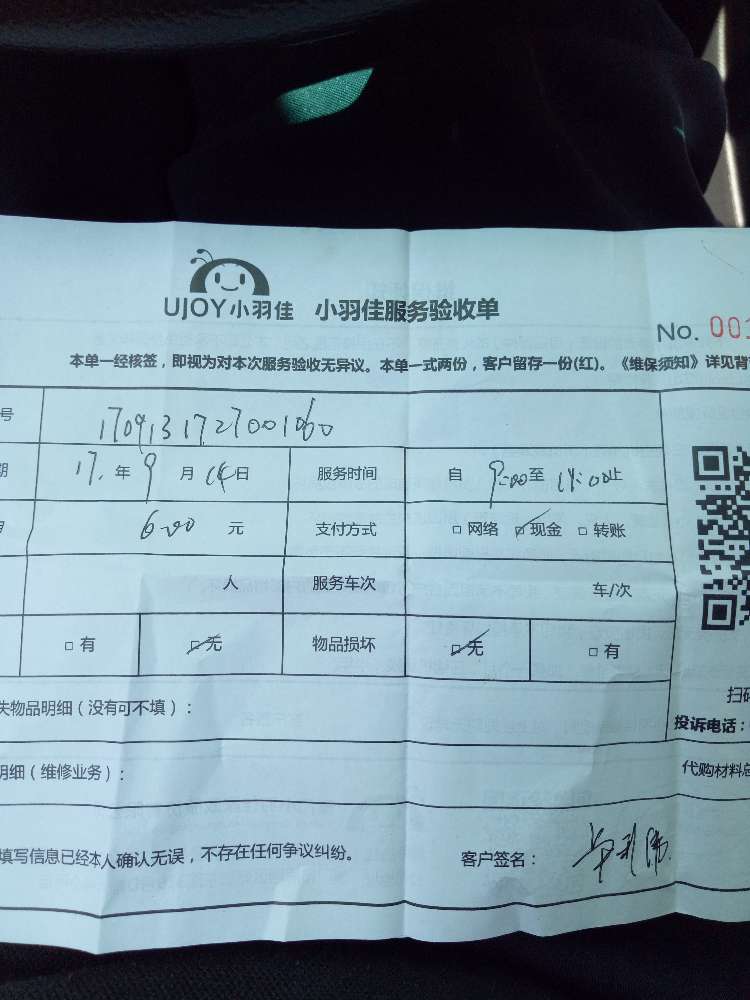 UJOY小羽佳 小羽佳服务验收单
No. 001
本单一经核签，即视为对本次服务验收无异议。本单一式两份，客户留存一份(红)。《维保须知》详见背
号 1709131727001060
期 17. 年 9 月 14 日 服务时间 自 9:00 至 14:00 止
600 元 支付方式 □ 网络 ☑ 现金 □ 转账
人 服务车次 车/次
□ 有 ☑ 无 物品损坏 ☑ 无 □ 有
失物品明细（没有可不填）：
扫码
投诉电话：
明细（维修业务）：
代购材料总
填写信息已经本人确认无误，不存在任何争议纠纷。 客户签名：